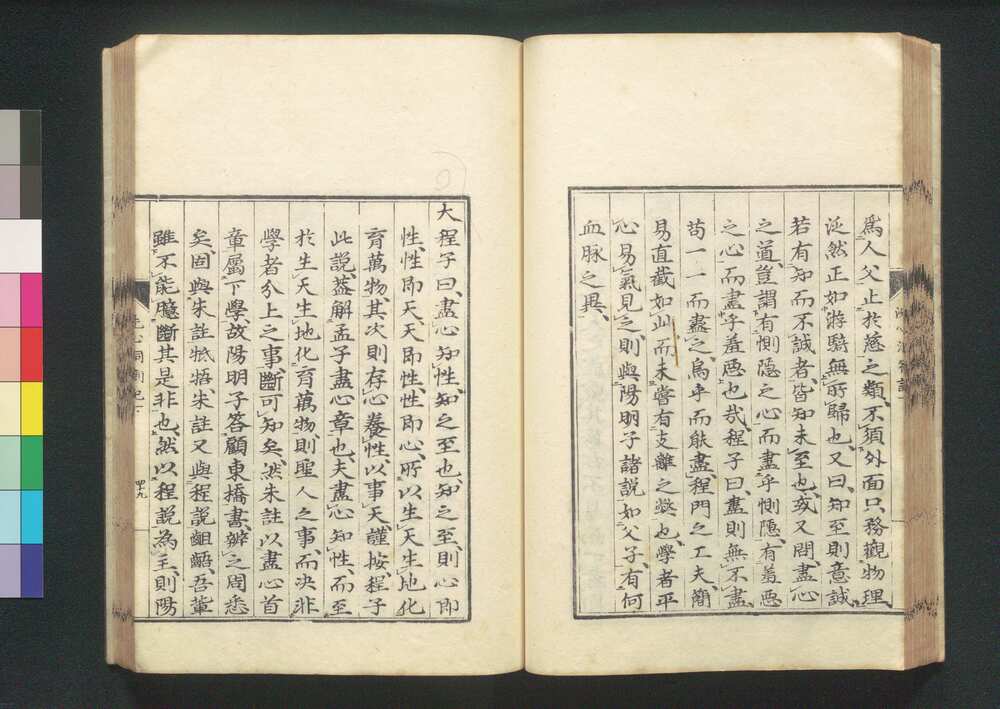 爲人父止於慈之類、不須外面只務觀物理、
泛然正如游騎無所歸也、又曰知至則意誠、
若有知而不誠者、皆知未至也、或又問盡心
之道、豈謂有惻隱之心而盡乎惻隱、有羞惡
之心而盡乎羞惡也哉、程子曰、盡則無不盡、
苟一一而盡之、烏乎而能盡、程門之工夫簡
易直截如此、而未嘗有支離之弊也、學者平
心易氣見之、則與陽明子諸說如父子、有何
血脉之異、
大程子曰、盡心知性、知之至也、知之至則心即
性、性即天、天即性、性即心、所以生天生地化
育萬物、其次則存心養性以事天、謹按、程子
此說、蓋解孟子盡心章也、夫盡心知性、而至
於生天生地化育萬物、則聖人之事、而決非
學者分上之事、斷可知矣、然朱註以盡心首
章屬下學、故陽明子答顧東橋書、辨之周悉
矣、固與朱註牴牾、朱註又與程說齟齬、吾輩
雖不能臆斷其是非也、然以程說為主、則陽
洗心洞劄記下
四十九